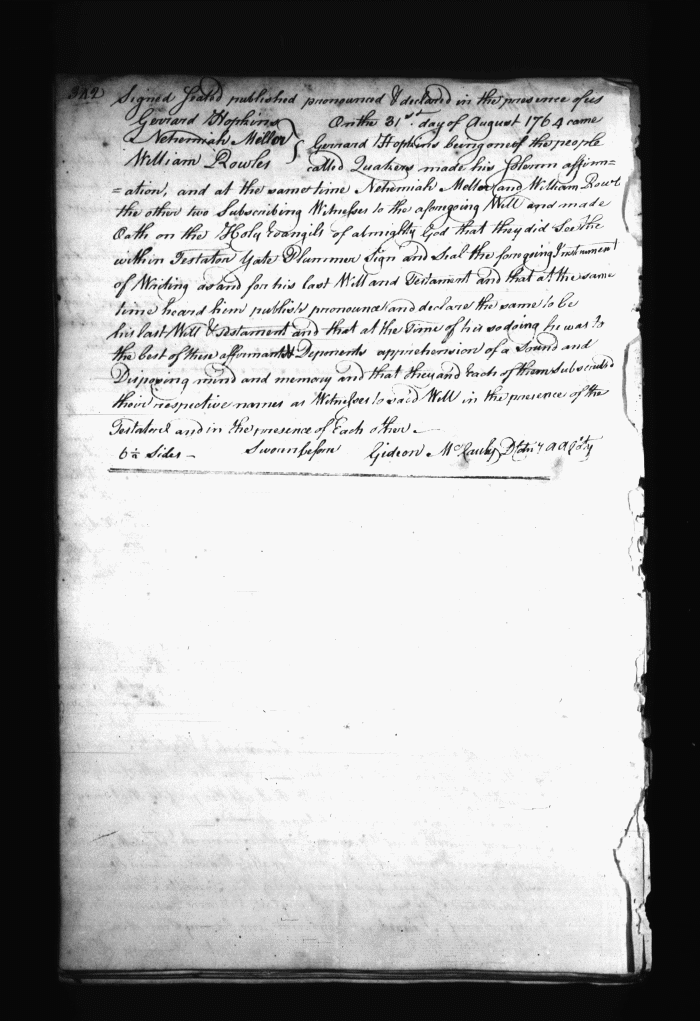 342 Signed Sealed published pronounced & declared in the presence of us
Gerrard Hopkins
Nehemiah Mellor
William Rowles
On the 31st. day of August 1764 came
Gerrard Hopkins being one of the people
called Quakers made his solumn affirm=
=ation, and at the same time Nehemiah Mellor and William Rowls
the other two Subscribing Witnesses to the aforegoing Will and made
Oath on the Holy Evangils of almighty God that they did See the
within Testator Yate Plummer Sign and Seal the foregoing Instrument
of Writing as and for his last Will and Testament and that at the same
time heard him publish pronounce and declare the same to be
his last Will & Testament and that at the Time of his so doing he was to
the best of these affirmants & Deponents apprehension of a Sound and
Disposing mind and memory and that they and Each of them Subscribd
their respective names as Witnesses to said Will in the presence of the
Testator & and in the presence of Each other —
6½ Sides — Sworn before Gideon